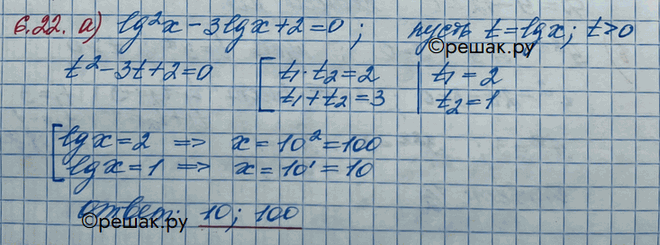 6.22. а) lg²x - 3lgx + 2 = 0; пусть t = lgx; t > 0
©решак.ру
t² - 3t + 2 = 0 [ t₁·t₂ = 2 | t₁ = 2
t₁ + t₂ = 3 | t₂ = 1
[ lgx = 2 => x = 10² = 100
lgx = 1 => x = 10¹ = 10
ответ: 10; 100
©решак.ру